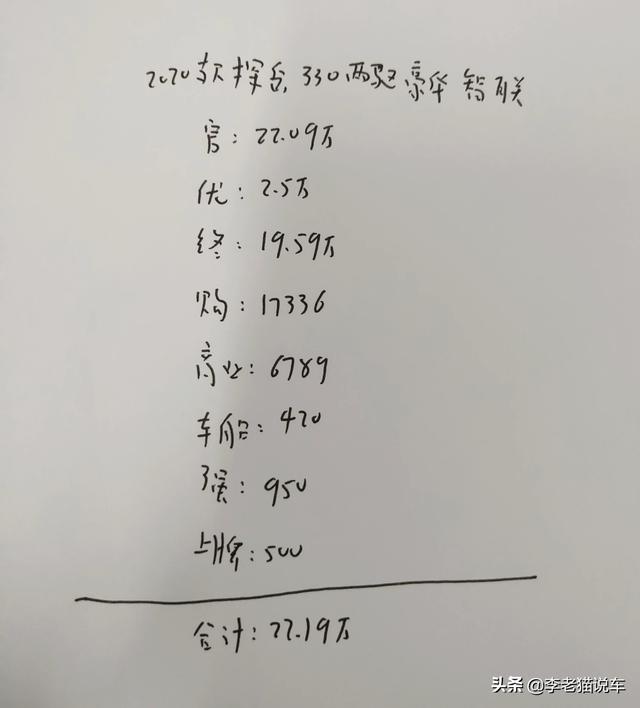 2020款探岳330两驱豪华智联
官：22.09万
优：2.5万
终：19.59万
购：17336
商业：6789
车船：420
强：950
上牌：500
合计：22.19万
头条 @李老猫说车